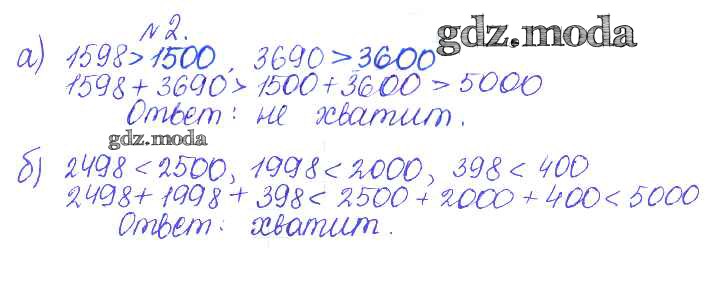 №2.
gdz.moda
а) 1598>1500, 3690>3600
1598+3690>1500+3600>5000
Ответ: не хватит.
gdz.moda
б) 2498<2500, 1998<2000, 398<400
2498+1998+398<2500+2000+400<5000
Ответ: хватит.